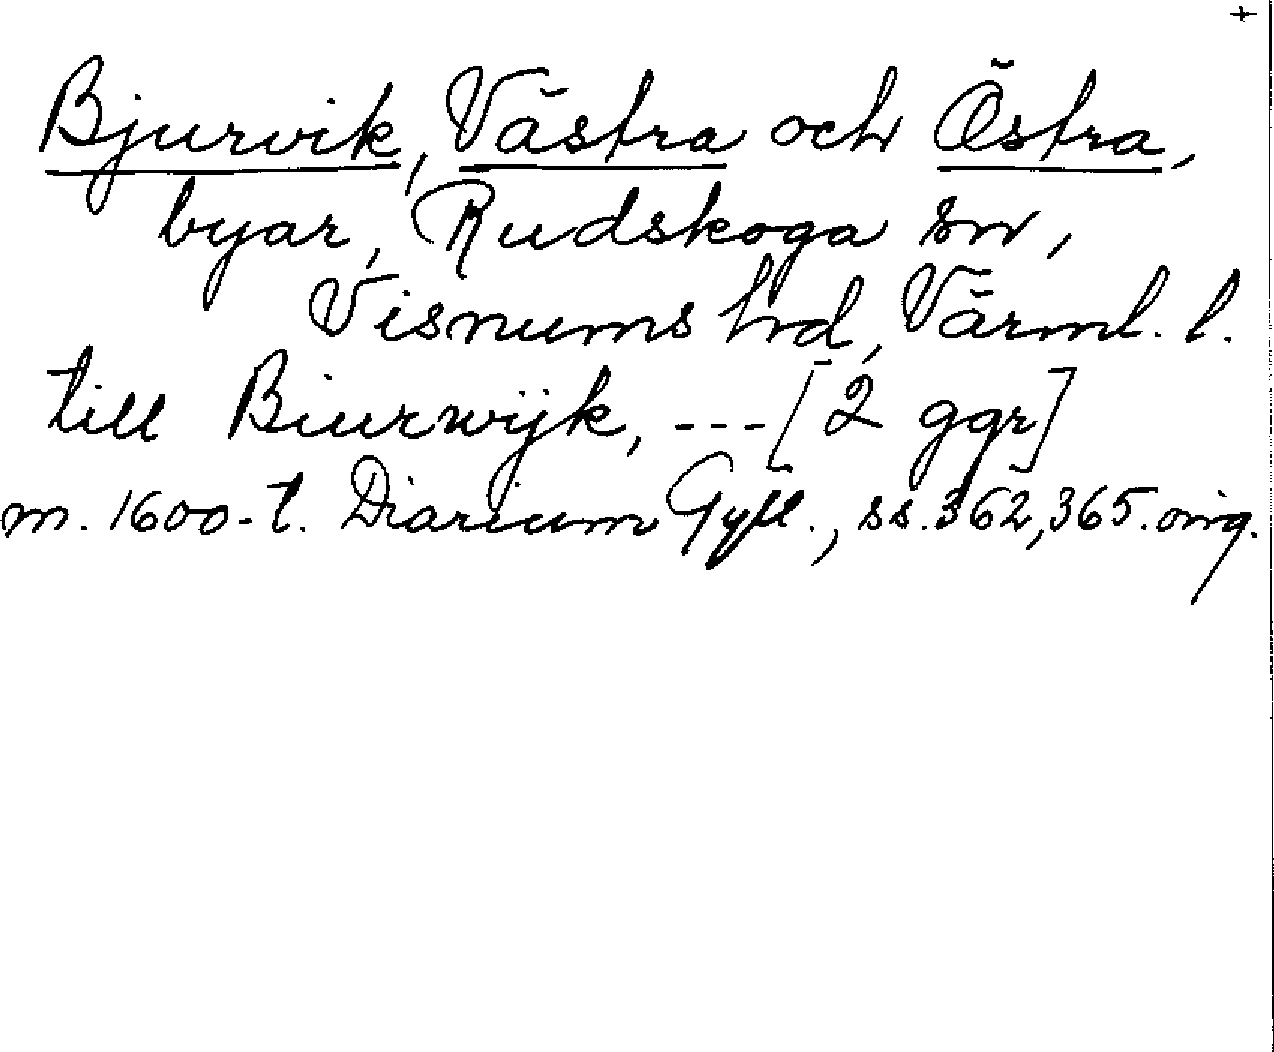 +
Bjurvik, Västra och Östra,
byar, Rudskoga sn,
Visnums hd, Värml. l.
till Biurwijk, --- [2 ggr]
m. 1600-t. Diarium Gyll., ss. 362, 365. orig.